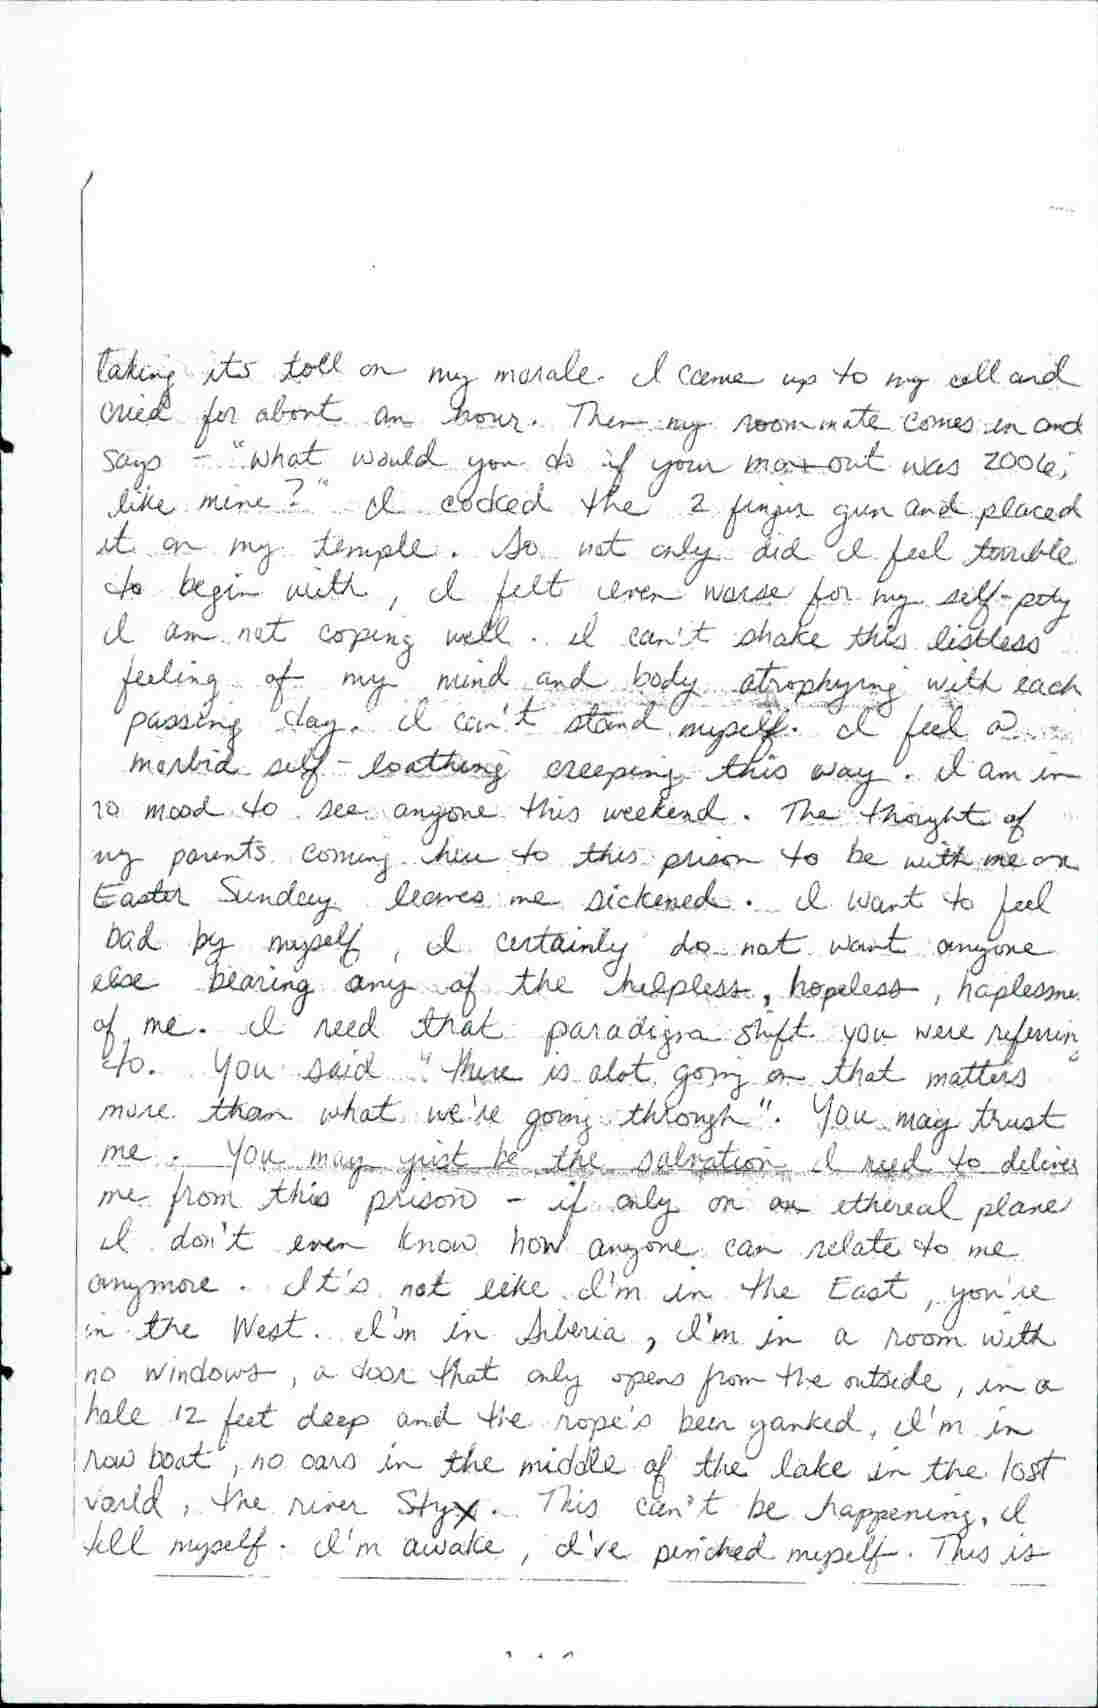 taking its toll on my morale. I came up to my cell and
cried for about an hour. Then my roommate comes in and
says - "what would you do if your max out was 2006,
like mine?" I cocked the 2 finger gun and placed
it on my temple. So not only did I feel terrible
to begin with, I felt even worse for my self-pity
I am not coping well. I can't shake this listless
feeling of my mind and body atrophying with each
passing day. I can't stand myself. I feel a
morbid self-loathing creeping this way. I am in
no mood to see anyone this weekend. The thought of
my parents coming here to this prison to be with me on
Easter Sunday leaves me sickened. I want to feel
bad by myself, I certainly do not want anyone
else bearing any of the helpless, hopeless, haplessne
of me. I need that paradigm shift you were referrin
to. You said "there is alot going on that matters
more than what we're going through". You may trust
me. You may just be the salvation I need to deliver
me from this prison - if only on an ethereal plane
I don't even know how anyone can relate to me
anymore. It's not like I'm in the East, you're
in the West. I'm in Siberia, I'm in a room with
no windows, a door that only opens from the outside, in a
hole 12 feet deep and the rope's been yanked, I'm in
row boat, no oars in the middle of the lake in the lost
world, the river Styx. This can't be happening, I
tell myself. I'm awake, I've pinched myself. This is